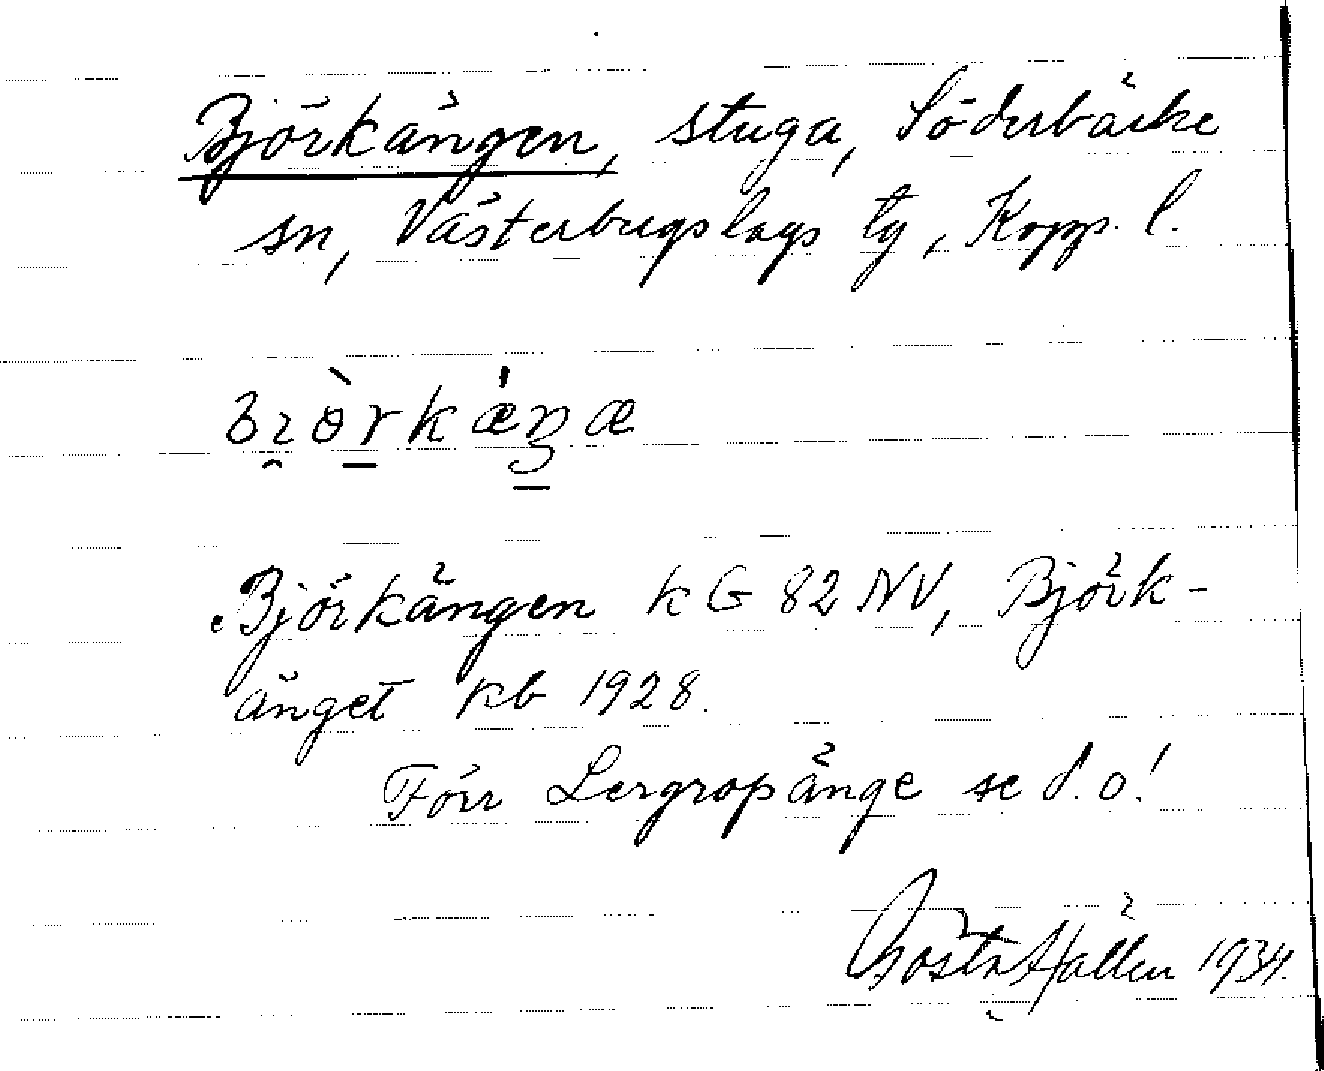 Björkängen, stuga, Söderbärke
sn, Västerbergslags tg, Kopp. l.
Björkängen kG 82 NV, Björk-
änget kb 1928.
Förr Lergropänge se d. o!
Gösta Hallén 1934.